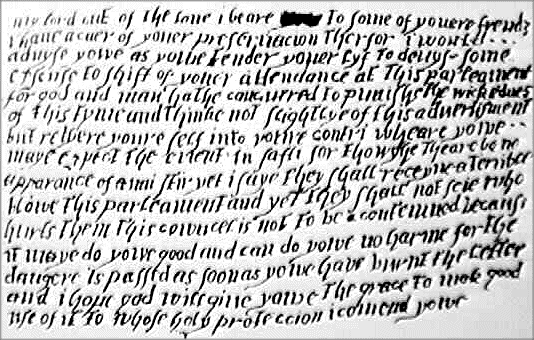 my lord out of the loue i beare to some of youere frendz
i haue a caer of youer preseruacion therfor i would
aduyse yowe as yowe tender youer lyf to deuys some
exscuse to shift of youer attendance at this parleament
for god and man hathe concurred to punishe the wickednes
of this tyme and thinke not slightlye of this aduertisment
but retyere youre self into youre contri wheare yowe
maye expect the euent in safti for thowghe theare be no
apparance of anni stir yet i saye they shall receyue a terribel
blowe this parleament and yet they shall not seie who
hurts them this cowncel is not to be contemned because
it maye do yowe good and can do yowe no harme for the
dangere is passed as soon as yowe haue burnt the letter
and i hope god will giue yowe the grace to mak good
use of it to whose holy proteccion i comend yowe